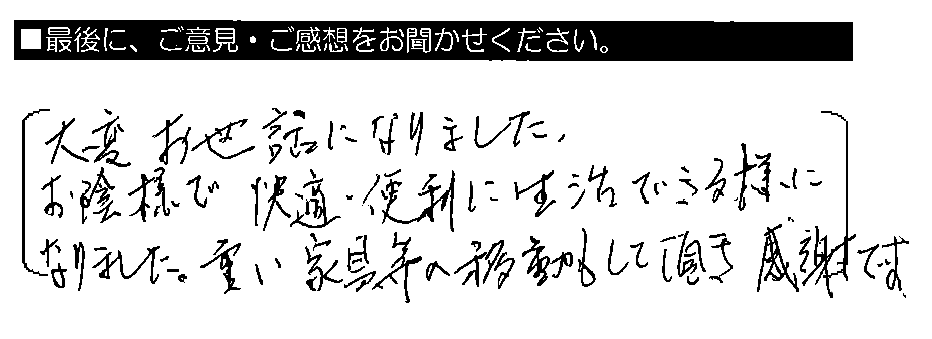 ■最後に、ご意見・ご感想をお聞かせください。
大変お世話になりました。
お陰様で 快適・便利に生活できる様に
なりました。重い家具等の移動もして頂き 感謝です